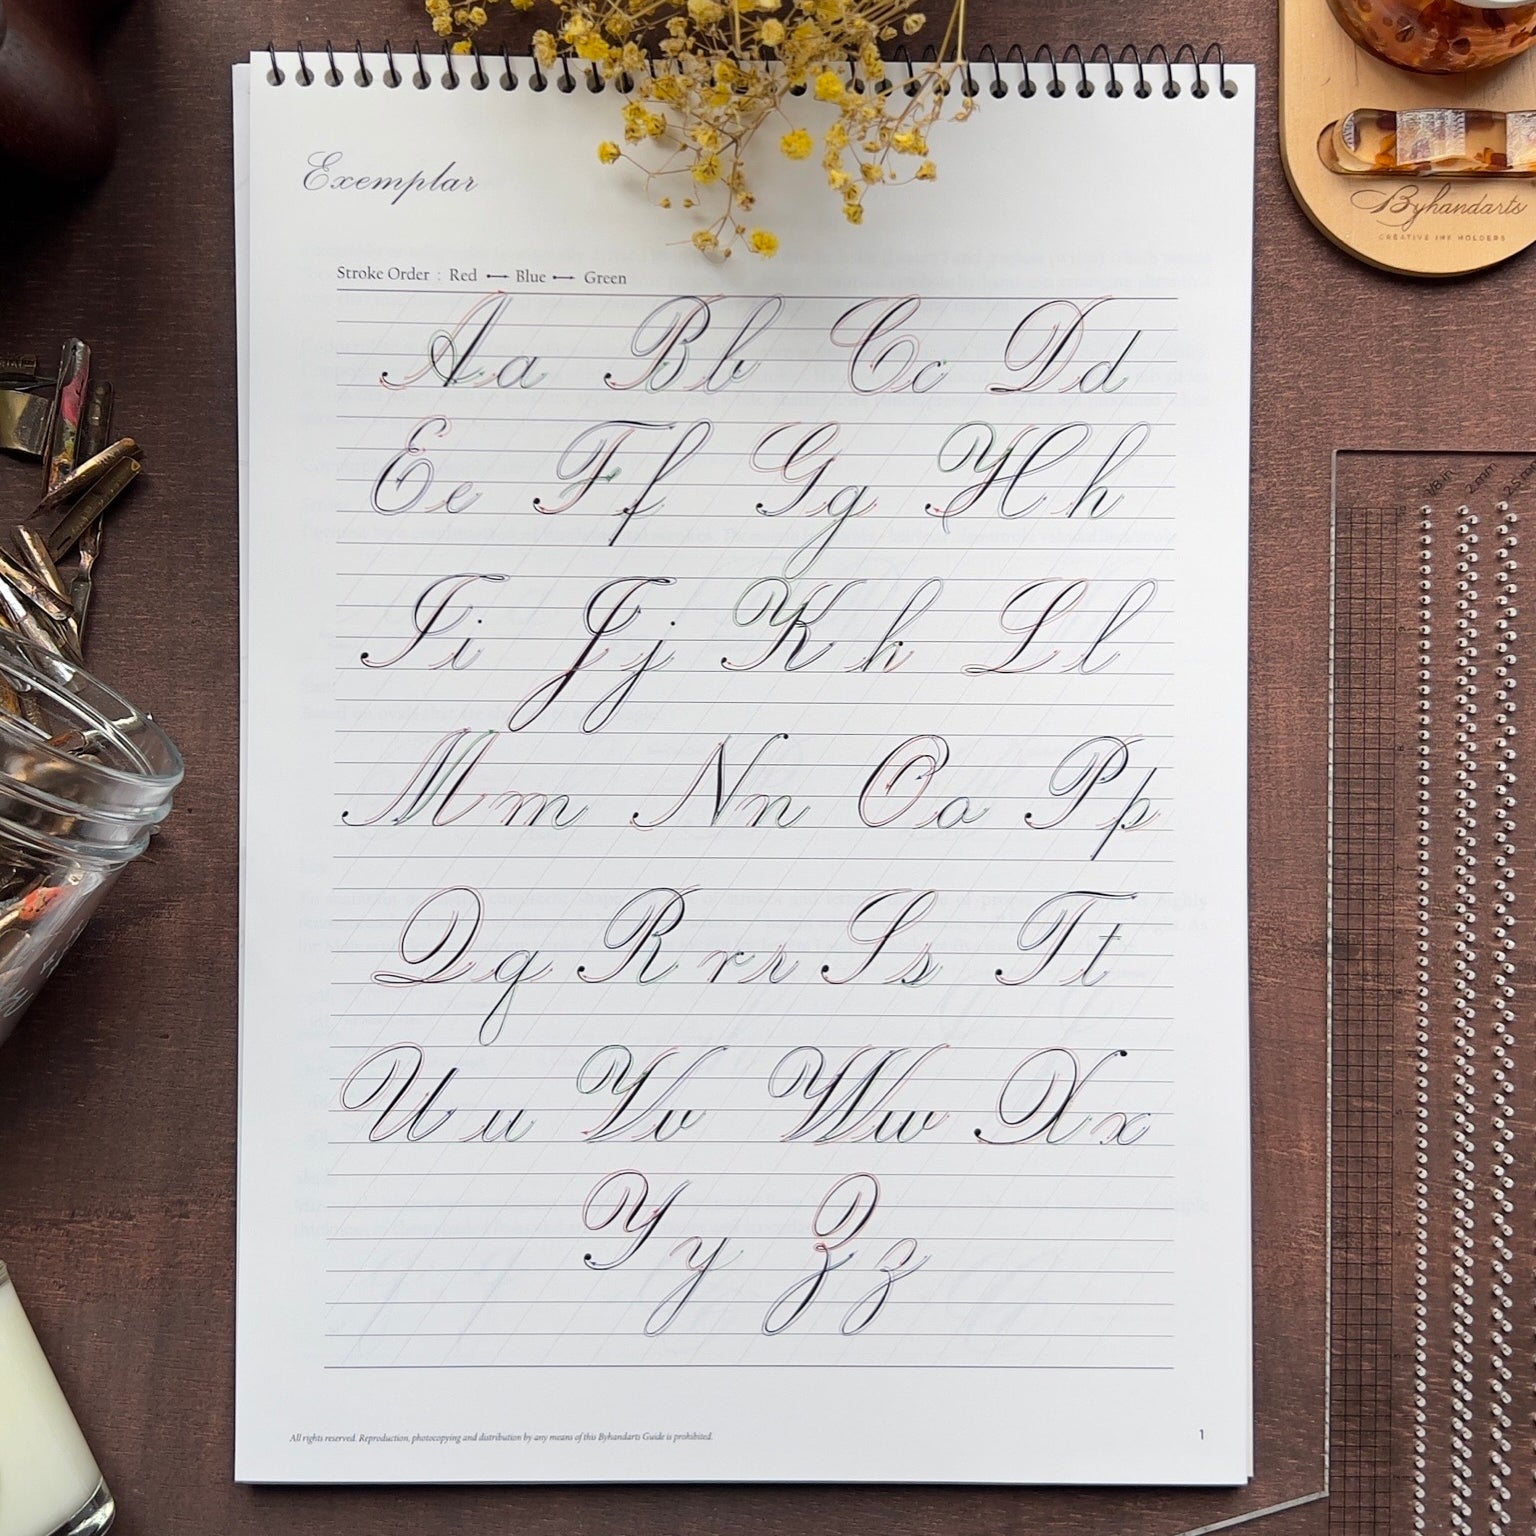 Exemplar
Stroke Order : Red ⟷ Blue ⟷ Green
Aa Bb Cc Dd
Ee Ff Gg Hh
Ii Jj Kk Ll
Mm Nn Oo Pp
Qq Rrr Ss Tt
Uu Vv Ww Xx
Yy Zz
All rights reserved. Reproduction, photocopying and distribution by any means of this Byhandarts Guide is prohibited.
1
Byhandarts
CREATIVE INK HOLDERS
1/8 in
2 mm
2.5 mm